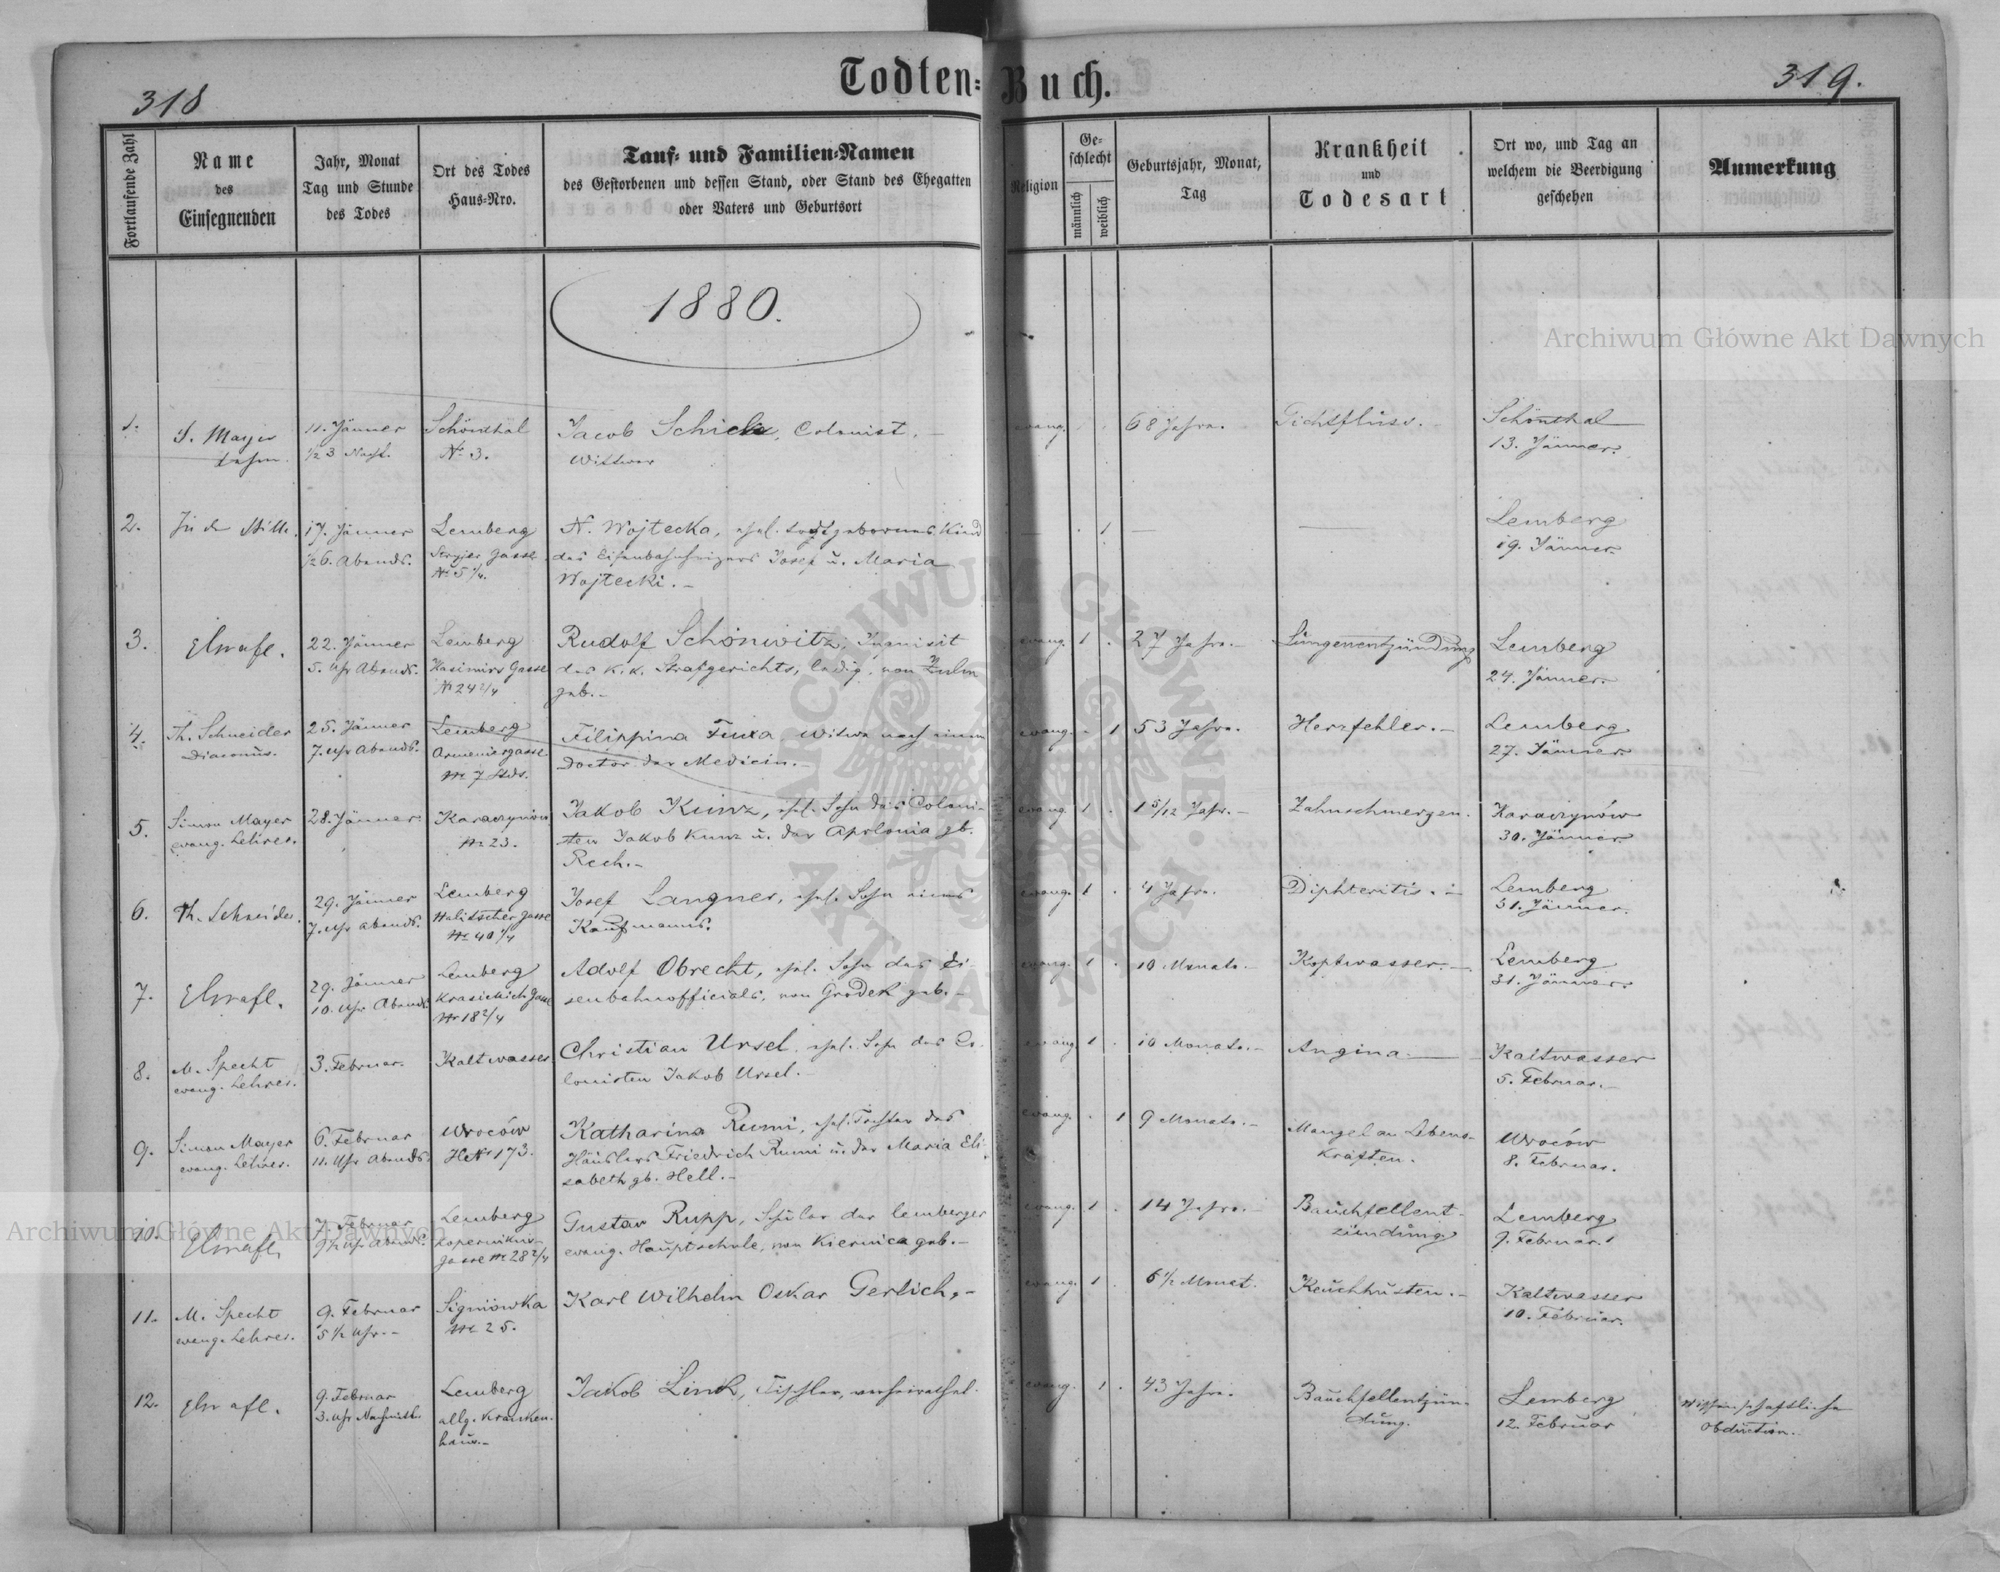 318
Todten-Buch.
319.
Fortlaufende Zahl
Name
des
Einsegnenden
Jahr, Monat
Tag und Stunde
des Todes
Ort des Todes
Haus-Nro.
Tauf- und Familien-Namen
des Gestorbenen und dessen Stand, oder Stand des Ehegatten
oder Vaters und Geburtsort
Religion
Ge-
schlecht
männlich
weiblich
Geburtsjahr, Monat,
Tag
Krankheit
und
Todesart
Ort wo, und Tag an
welchem die Beerdigung
geschehen
Anmerkung
1880.
1.
S. Mayer
11. Jänner
½ 3 Nacht.
Schönthal
No 3.
Jacob Schick, Colonist,
Wittwer
evang.
68 Jahre.
Schönthal
13. Jänner.
2.
In der Stille.
17. Jänner
½6. Abends.
Lemberg
Stryjer Gasse
No 5 1/4.
N. Wojtecka, ehel. todtgebornes Kind
des Eisenbahnheizers Josef u. Maria
Wojtecki.-
1
Lemberg
19. Jänner.
3.
22. Jänner
5. Uhr Abends.
Lemberg
Kasimirs Gasse
No 24 2/4
Rudolf Schönwitz, Inquisit
des K. K. Strafgerichts, ledig, von
geb.-
evang.
1
27 Jahre.-
Lungenentzündung
Lemberg
24. Jänner.
4.
Th. Schneider
Diaconus.
25. Jänner
7. Uhr Abends.
Lemberg
Armeniergasse
No 7 Stdt.
Filippina Witwe nach einem
Doctor der Medicin.-
evang.
1
53 Jahre.
Herzfehler.-
Lemberg
27. Jänner
5.
Simon Mayer
evang. Lehrer.
28. Jänner
Karaczynów
No 23.
Jakob Kunz, ehel. Sohn des Coloni-
sten Jakob Kunz u. der Apolonia gb.
Rech.-
evang.
1
1 5/12 Jahr.-
Zahnschmerzen.
Karaczynów
30. Jänner.
6.
Th. Schneider.
29. Jänner
7. Uhr Abends.
Lemberg
Halitscher Gasse
No 40 1/4
Josef Langner, ehel. Sohn eines
Kaufmanns.
evang.
1
4 Jahre.
Diphteritis.-
Lemberg
31. Jänner.
7.
29. Jänner
10. Uhr Abends
Lemberg
Krasickich Gasse
No 18 2/4
Adolf Obrecht, ehel. Sohn des Ei-
senbahnofficials, von Grodek geb.-
evang.
1
10 Monate.-
Kopfwasser.-
Lemberg
31. Jänner.
8.
M. Specht
evang. Lehrer.
3. Februar.
Kaltwasser
Christian Ursel, ehel. Sohn des Co-
lonisten Jakob Ursel.-
evang.
1
10 Monate.-
Angina.
Kaltwasser
5. Februar.-
9.
Simon Mayer
evang. Lehrer.
6. Februar
11. Uhr Abends.
Wroców
HNo 173.
Katharina Rumi, ehel. Tochter des
Häuslers Friedrich Rumi u. der Maria Eli-
sabeth gb. Hell.-
evang.
1
9 Monate.-
Mangel an Lebens-
kräften.
Wroców
8. Februar.
10.
7. Februar
9½ Uhr Abends.
Lemberg
Kopernikus-
gasse No 28 2/4
Gustav Rupp, Schüler der lemberger
evang. Hauptschule, von Kiernica geb.-
evang.
1
14 Jahre.-
Bauchfellent-
zündung
Lemberg
9. Februar.
11.
M. Specht
evang. Lehrer.
9. Februar
5½ Uhr.-
Signiówka
No 25.
Karl Wilhelm Oskar Gerlich,-
evang.
1
6½ Monat.
Keuchhusten.-
Kaltwasser
10. Februar.
12.
9. Februar
3. Uhr Nachmitt.
Lemberg
allg. Kranken-
haus.-
Jakob Linck, Tischler, verheirathet.
evang.
1
43 Jahre.
Bauchfellentzün-
dung.
Lemberg
12. Februar
Wissenschaftliche
Obduction.
Archiwum Główne Akt Dawnych
Archiwum Główne Akt Dawnych
ARCHIWUM GŁÓWNE AKT DAWNYCH